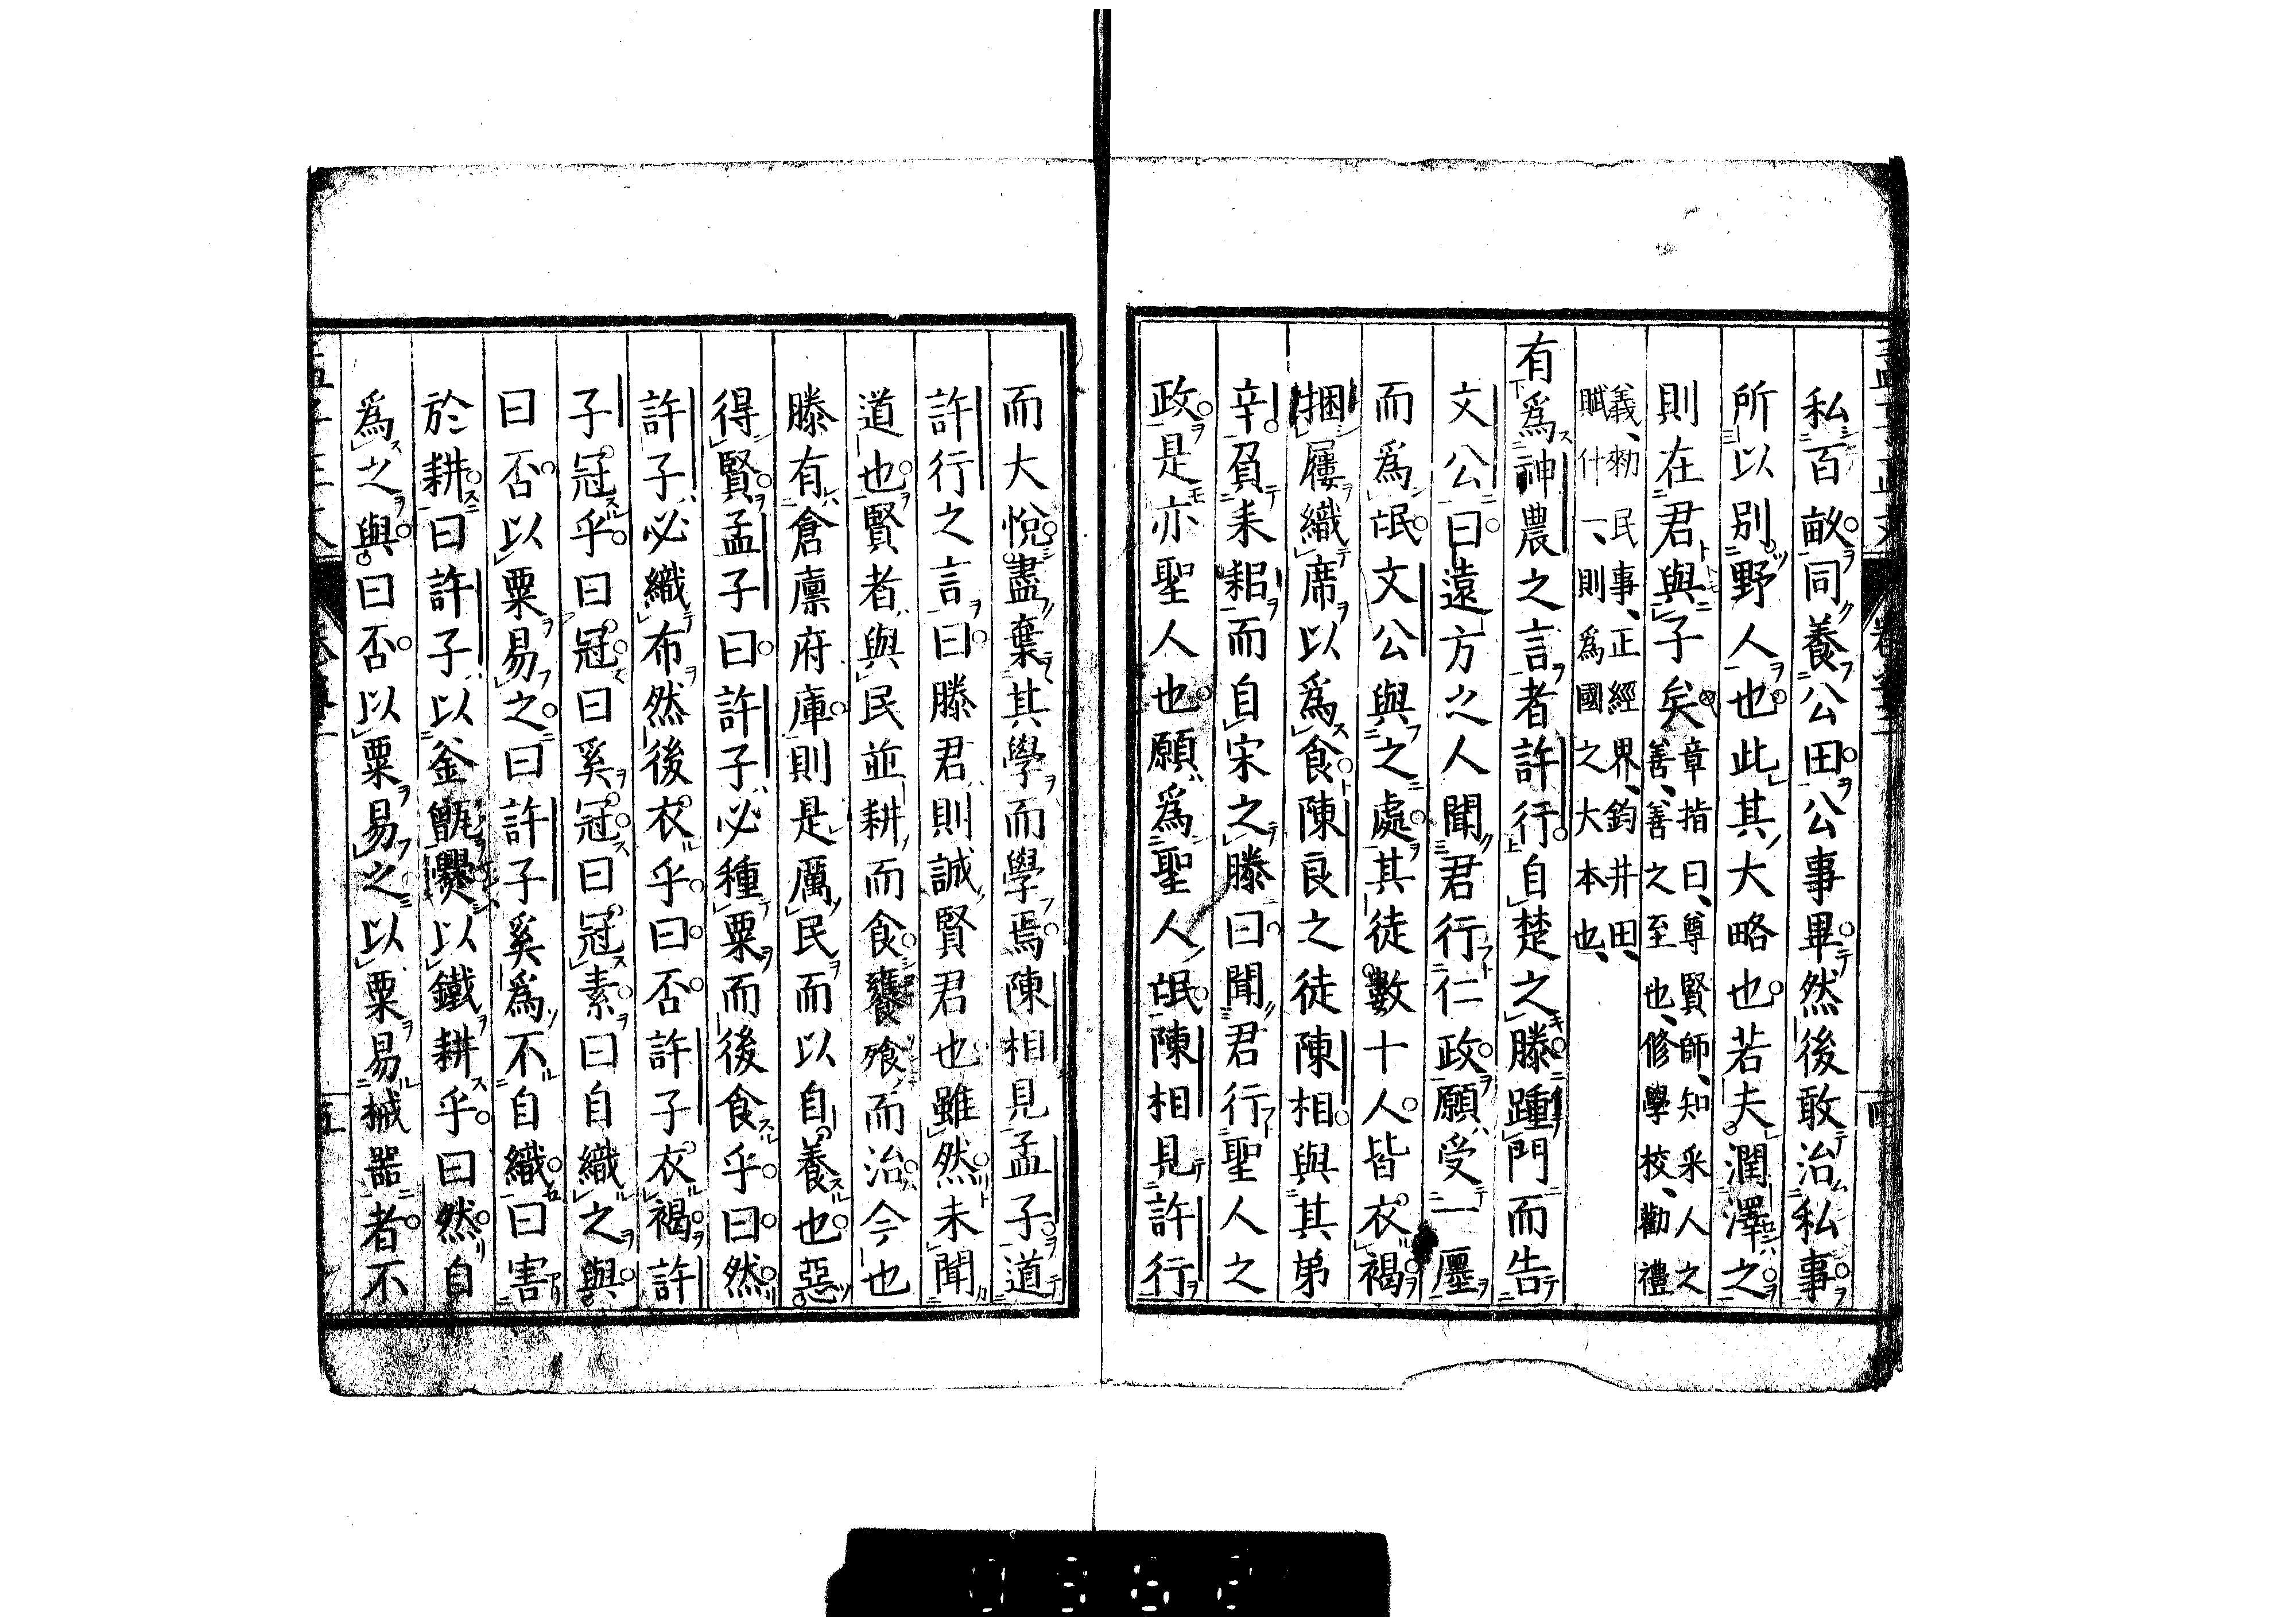 私百畝同養公田公事畢然後敢治私事
所以別野人也此其大略也若夫潤澤之
則在君與子矣章指曰尊賢師知采人之
善善之至也修學校勸禮
義勑民事正經界鈞井田
賦什一則爲國之大本也
有爲神農之言者許行自楚之滕踵門而告
文公曰遠方之人聞君行仁政願受一廛
而爲氓文公與之處其徒數十人皆衣褐
捆屨織席以爲食陳良之徒陳相與其弟
辛負耒耜而自宋之滕曰聞君行聖人之
政是亦聖人也願爲聖人氓陳相見許行
而大悅盡棄其學而學焉陳相見孟子道
許行之言曰滕君則誠賢君也雖然未聞
道也賢者與民並耕而食饔飧而治今也
滕有倉廩府庫則是厲民而以自養也惡
得賢孟子曰許子必種粟而後食乎曰然
許子必織布然後衣乎曰否許子衣褐許
子冠乎曰冠曰奚冠曰冠素曰自織之與
曰否以粟易之曰許子奚爲不自織曰害
於耕曰許子以釜甑爨以鐵耕乎曰然自
爲之與曰否以粟易之以粟易械器者不